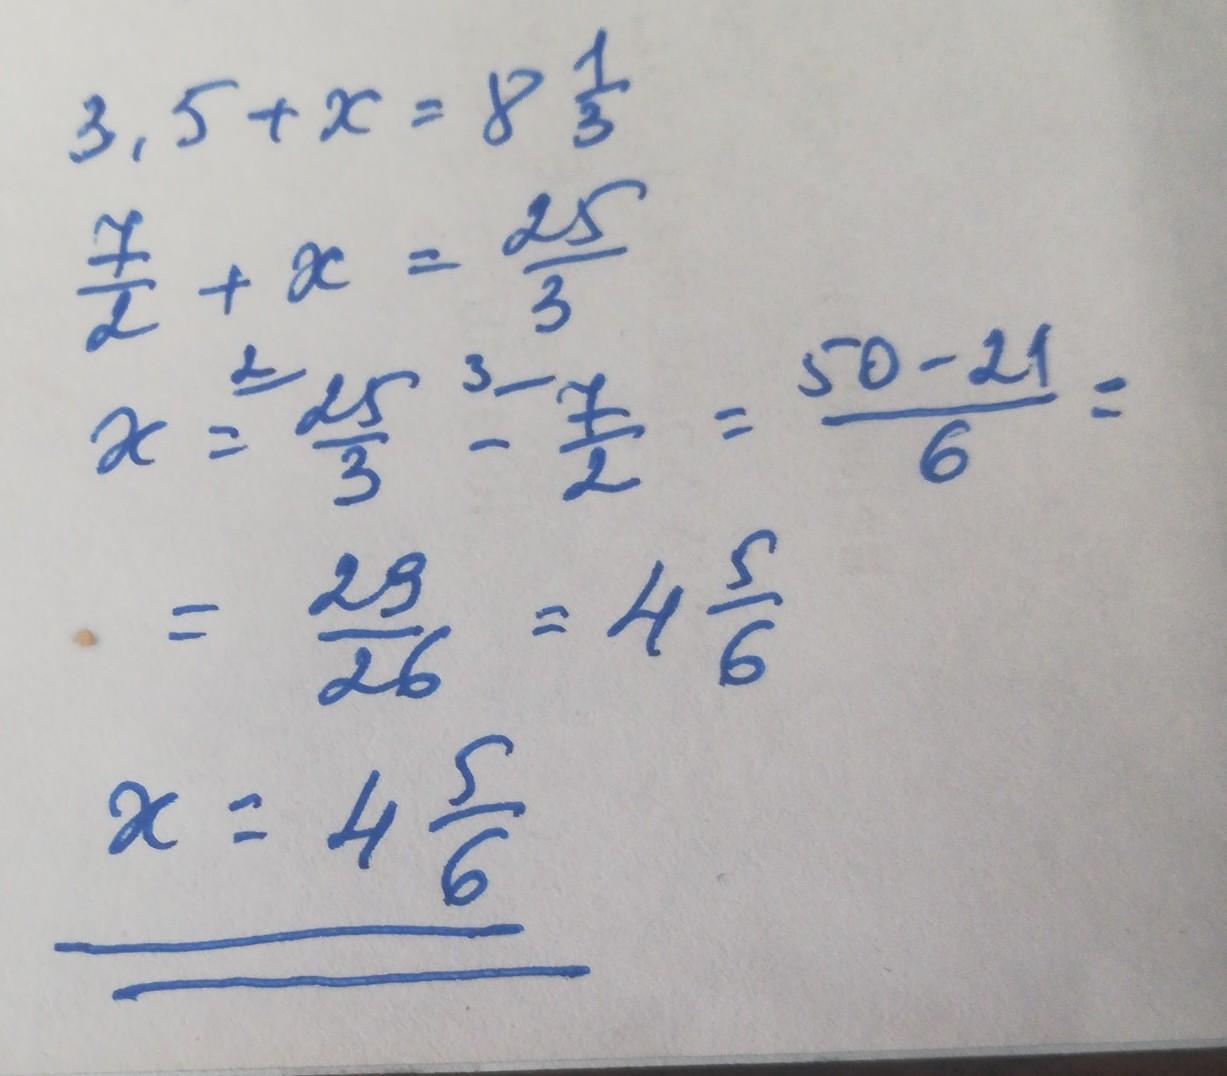 3,5 + x = 8 1/3
7/2 + x = 25/3
x = ²⁄25/3 - ³⁄7/2 = 50 - 21/6 =
= 29/26 = 4 5/6
x = 4 5/6